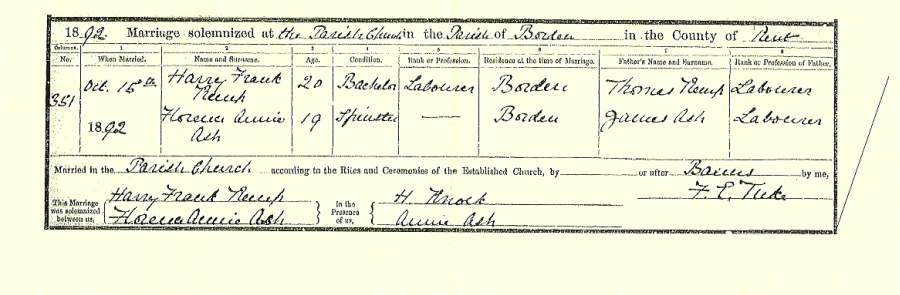 1892 Marriage solemnized at the Parish Church in the Parish of Borden in the County of Kent
Columns. 1 2 3 4 5 6 7 8
No. When Married. Name and Surname. Age. Condition. Rank or Profession. Residence at the time of Marriage. Father's Name and Surname. Rank or Profession of Father.
351 Oct. 15th Harry Frank Kemp 20 Bachelor Labourer Borden Thomas Kemp Labourer
1892 Florence Annie Ash 19 Spinster — Borden James Ash Labourer
Married in the Parish Church according to the Rites and Ceremonies of the Established Church, by or after Banns by me,
This Marriage was solemnized between us, Harry Frank Kemp In the Presence of us, H. Knock F. E. Tuke
Florence Annie Ash Annie Ash